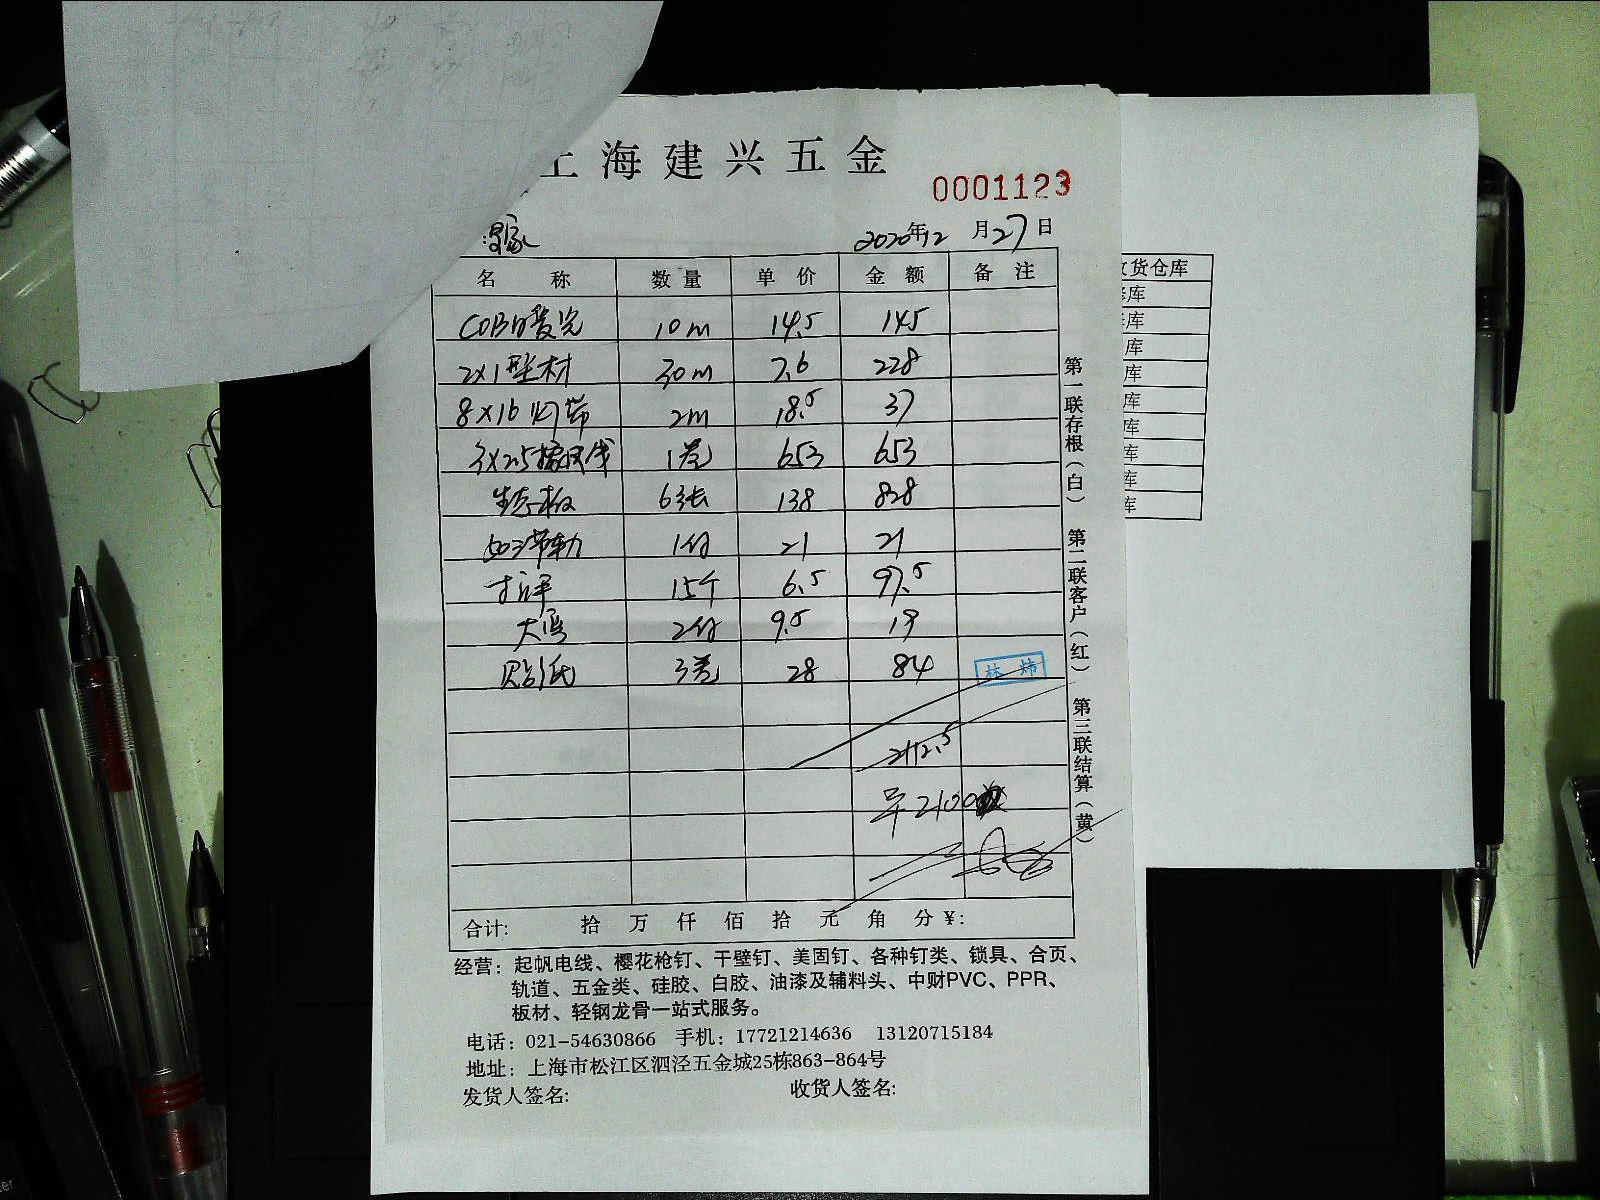 上海建兴五金
0001123
2020年12月27日
名称 数量 单价 金额 备注
COB 10m 14.5 145
2×1型材 30m 7.6 228
8×16灯带 2m 18.5 37
3×2.5 1卷 653 653
生态板 6张 138 828
50三节轨 1付 21 21
15个 6.5 97.5
大弯 2付 9.5 19
贴纸 3卷 28 84
林炜
2112.5
平2100
合计: 拾 万 仟 佰 拾 元 角 分 ¥:
第一联存根(白) 第二联客户(红) 第三联结算(黄)
经营：起帆电线、樱花枪钉、干壁钉、美固钉、各种钉类、锁具、合页、
轨道、五金类、硅胶、白胶、油漆及辅料头、中财PVC、PPR、
板材、轻钢龙骨一站式服务。
电话：021-54630866 手机：17721214636 13120715184
地址：上海市松江区泗泾五金城25栋863-864号
发货人签名: 收货人签名:
货仓库
库
库
库
库
库
库
库
库
库